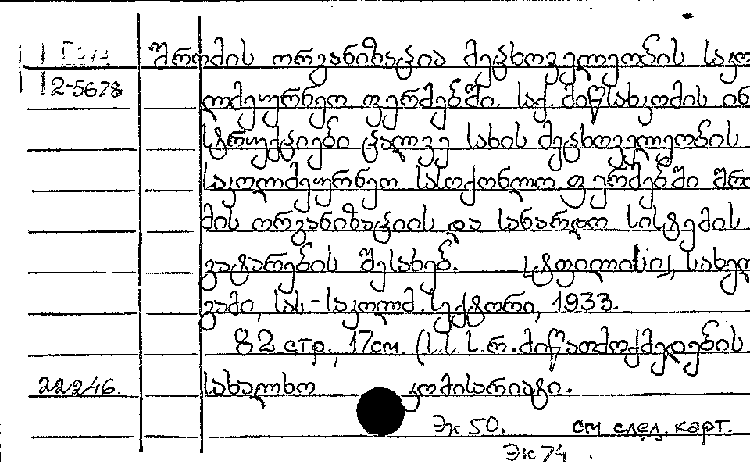 შრომის ორგანიზაცია მეცხოველეობის საკო
12-5678 ლმეურნეო ფერმებში. საქ. მიწსახკომის ინ
სტრუქციები ცალკე სახის მეცხოველეობის
საკოლმეურნეო სასოქონლო ფერმებში შრო
მის ორგანიზაციის და სანარდო სისტემის
გატარების შესახებ. [ტფილისი], სახელ
გამი, სას.-საკოლმ. სექტორი, 1933.
82 стр., 17см. (ს.ს.ს.რ. მიწათმოქმედების
22246. სახალხო კომისარიატი.
Эк 50. см след. карт.
Эк 74